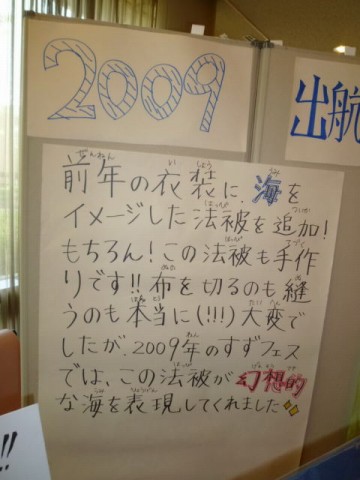 2009
出航
前年の衣装に、海を
イメージした法被を追加!
もちろん!この法被も手作
りです!!布を切るのも縫
うのも本当に(!!!)大変で
したが、2009年のすずフェス
では、この法被が幻想的
な海を表現してくれました
!!